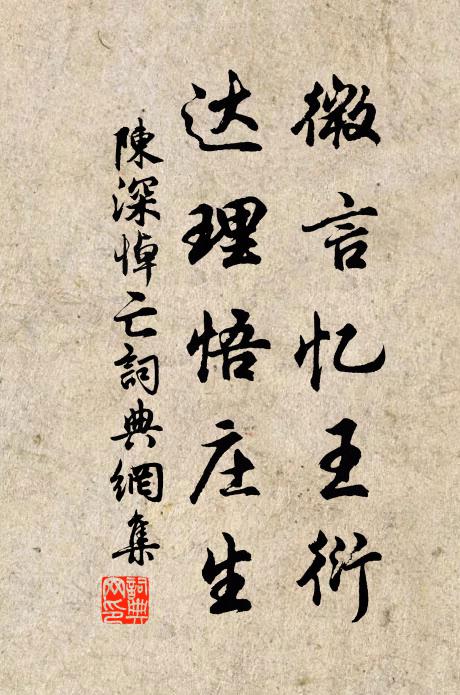 微言忆王衍
达理悟庄生
陳深悼亡詞典網集
詞典網印